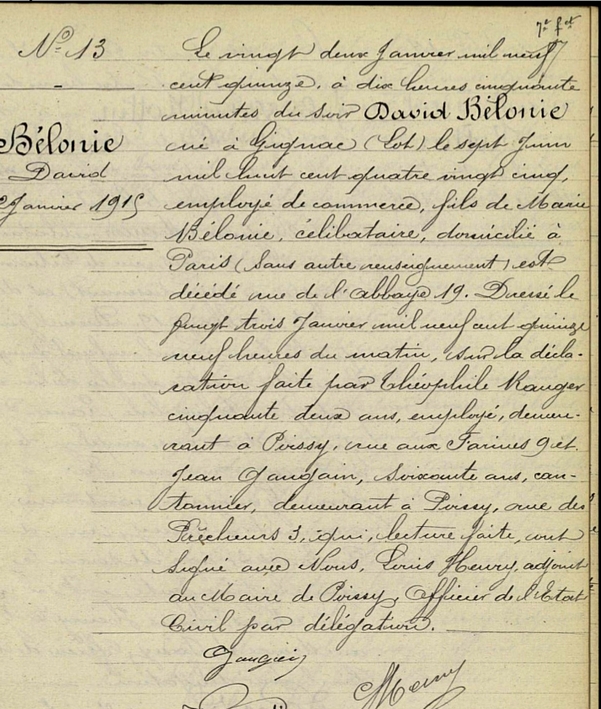 7e ft
N° 13
Bélonie
David
Janvier 1915
Le vingt deux Janvier mil neuf
cent quinze, à dix heures cinquante
minutes du soir David Bélonie
né à Gignac (Lot) le sept Juin
mil huit cent quatre vingt cinq,
employé de commerce, fils de Marie
Bélonie, célibataire, domicilié à
Paris (sans autre renseignement) est
décédé rue de l'abbaye 19. Dressé le
vingt trois Janvier mil neuf cent quinze
neuf heures du matin, sur la décla-
ration faite par Théophile Rauger
cinquante deux ans, employé, demeu-
rant à Poissy, rue aux Farines 9 et
Jean Gaugain, soixante ans, can-
tonnier, demeurant à Poissy, rue des
Prêcheurs 3, qui, lecture faite, ont
signé avec Nous, Louis Henry, adjoint
au Maire de Poissy, Officier de l'Etat
Civil par délégation.
Gaugain
Henry